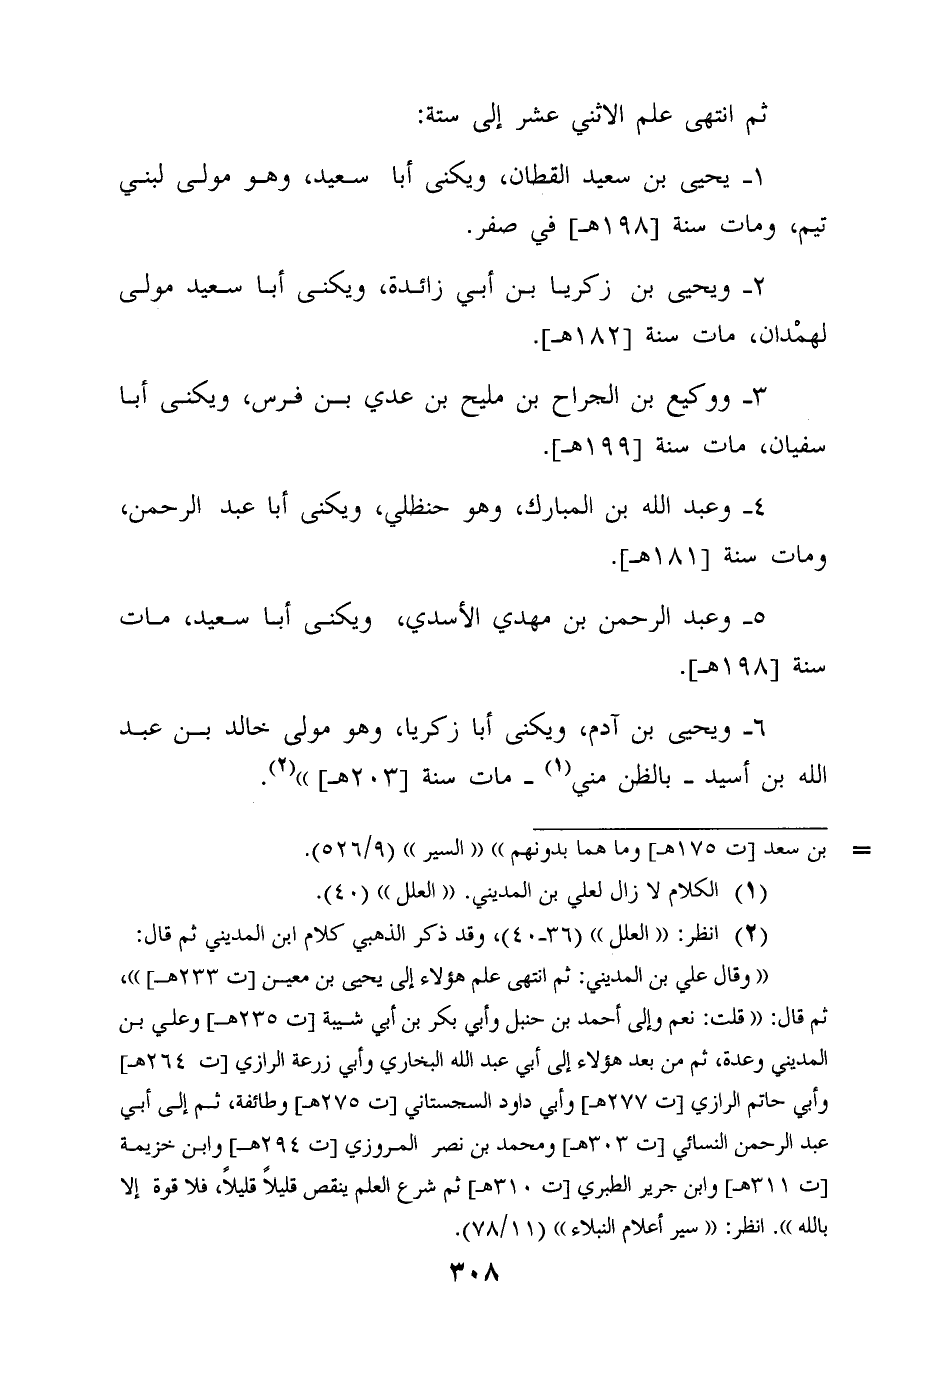 ثم انتهى علم الاثني عشر إلى ستة:
١ـ يحيى بن سعيد القطان، ويكنى أبا سعيد، وهو مولى لبني
تيم، ومات سنة [١٩٨هـ] في صفر.
٢ـ ويحيى بن زكريا بن أبي زائدة، ويكنى أبا سعيد مولى
لهمْدان، مات سنة [١٨٢هـ].
٣ـ ووكيع بن الجراح بن مليح بن عدي بن فرس، ويكنى أبا
سفيان، مات سنة [١٩٩هـ].
٤ـ وعبد الله بن المبارك، وهو حنظلي، ويكنى أبا عبد الرحمن،
ومات سنة [١٨١هـ].
٥ـ وعبد الرحمن بن مهدي الأسدي، ويكنى أبا سعيد، مات
سنة [١٩٨هـ].
٦ـ ويحيى بن آدم، ويكنى أبا زكريا، وهو مولى خالد بن عبد
الله بن أسيد ـ بالظن مني(١) ـ مات سنة [٢٠٣هـ] »(٢).
= بن سعد [ت ١٧٥هـ] وما هما بدونهم » « السير » (٥٢٦/٩).
(١) الكلام لا زال لعلي بن المديني. « العلل » (٤٠).
(٢) انظر: « العلل » (٣٦ـ٤٠)، وقد ذكر الذهبي كلام ابن المديني ثم قال:
« وقال علي بن المديني: ثم انتهى علم هؤلاء إلى يحيى بن معين [ت ٢٣٣هـ] »،
ثم قال: « قلت: نعم وإلى أحمد بن حنبل وأبي بكر بن أبي شيبة [ت ٢٣٥هـ] وعلي بن
المديني وعدة، ثم من بعد هؤلاء إلى أبي عبد الله البخاري وأبي زرعة الرازي [ت ٢٦٤هـ]
وأبي حاتم الرازي [ت ٢٧٧هـ] وأبي داود السجستاني [ت ٢٧٥هـ] وطائفة، ثم إلى أبي
عبد الرحمن النسائي [ت ٣٠٣هـ] ومحمد بن نصر المروزي [ت ٢٩٤هـ] وابن خزيمة
[ت ٣١١هـ] وابن جرير الطبري [ت ٣١٠هـ] ثم شرع العلم ينقص قليلاً قليلاً، فلا قوة إلا
بالله ». انظر: « سير أعلام النبلاء » (٧٨/١١).
٣٠٨